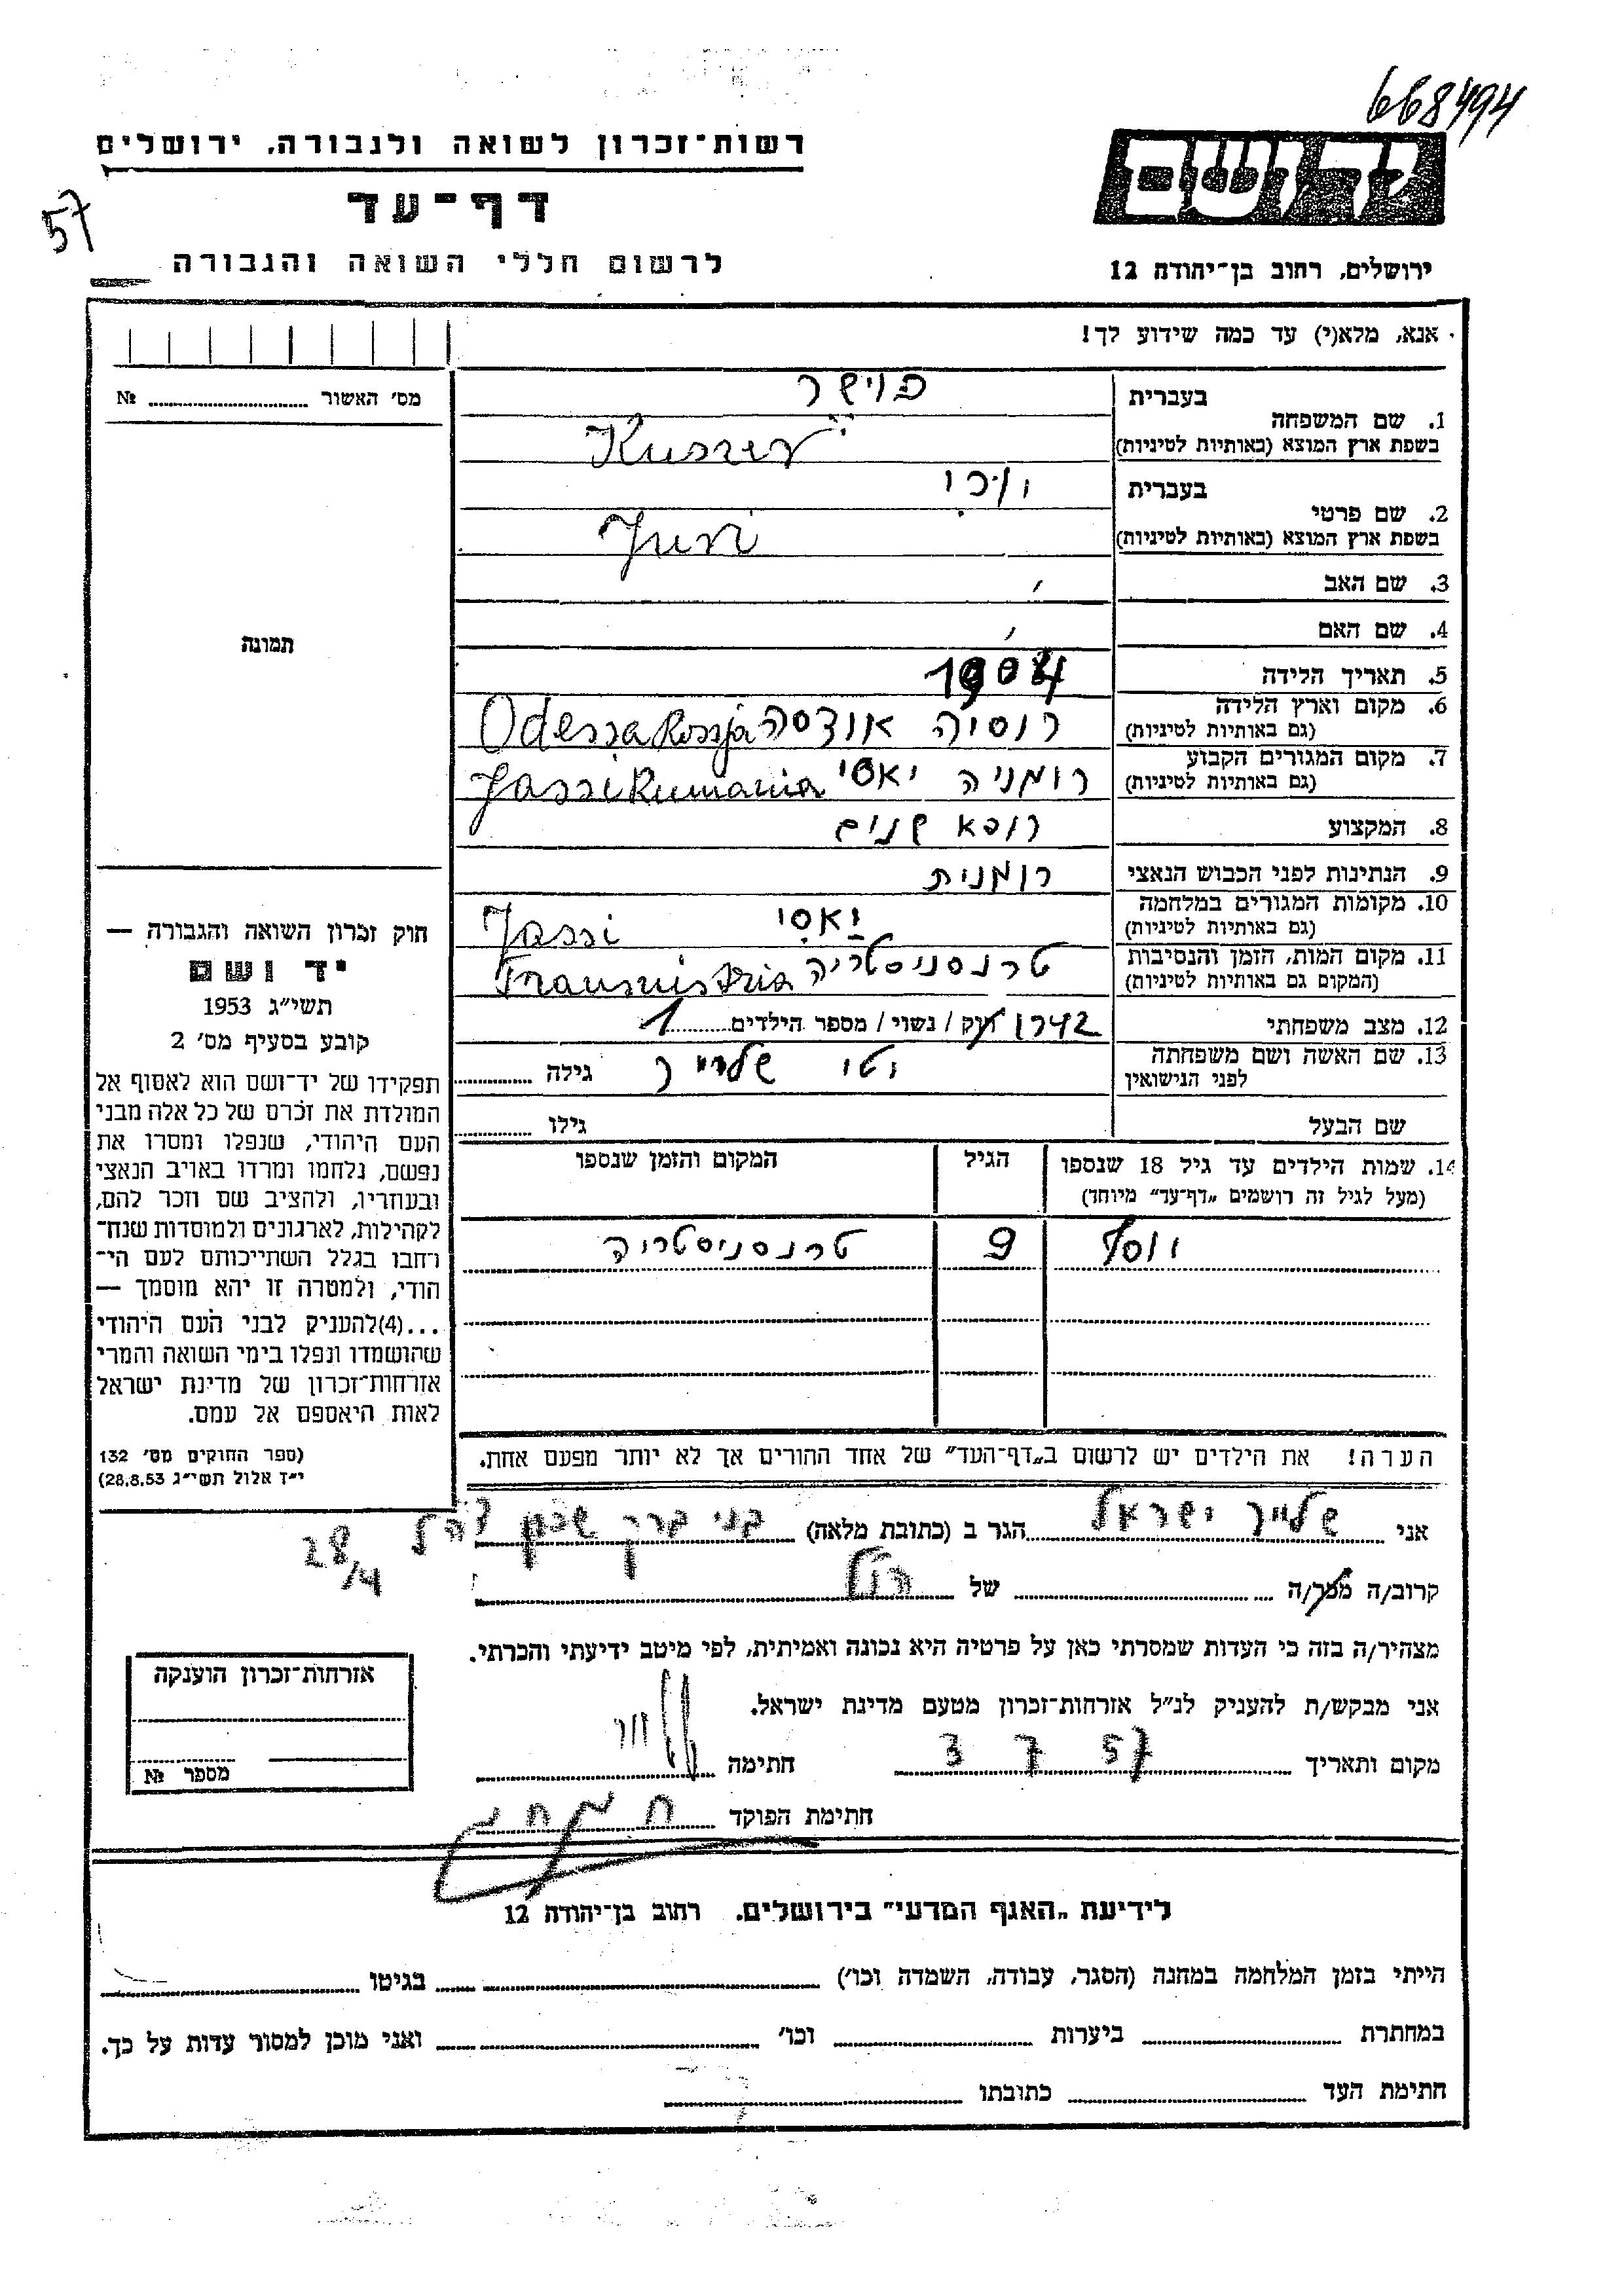 668494
רשות־זכרון לשואה ולגבורה, ירושלים
יד ושם
דף־עד
57
לרשום חללי השואה והגבורה
ירושלים, רחוב בן־יהודה 12
אנא, מלא(י) עד כמה שידוע לך!
מס׳ האשור № 
בעברית
1. שם המשפחה
בשפת ארץ המוצא (באותיות לטיניות)
בעברית
2. שם פרטי
בשפת ארץ המוצא (באותיות לטיניות)
Juri
3. שם האב
4. שם האם
תמונה
5. תאריך הלידה 1904
6. מקום וארץ הלידה
(גם באותיות לטיניות)
רוסיה אודסה Odessa Rossja
7. מקום המגורים הקבוע
(גם באותיות לטיניות)
רומניה יאסי Jassi Rumania
8. המקצוע רופא שנים
9. הנתינות לפני הכבוש הנאצי רומנית
10. מקומות המגורים במלחמה
(גם באותיות לטיניות)
יאסי Jassi
11. מקום המות, הזמן והנסיבות
(המקום גם באותיות לטיניות)
טרנסניסטריה Transnistria
12. מצב משפחתי רוק / נשוי / מספר הילדים 1
13. שם האשה ושם משפחתה
לפני הנישואין
גילה
שם הבעל גילו
14. שמות הילדים עד גיל 18 שנספו
(מעל לגיל זה רושמים „דף־עד” מיוחד)
הגיל
המקום והזמן שנספו
יוסף 9 טרנסניסטריה
חוק זכרון השואה והגבורה —
יד ושם
תשי״ג 1953
קובע בסעיף מס׳ 2
תפקידו של יד־ושם הוא לאסוף אל
המולדת את זכרם של כל אלה מבני
העם היהודי, שנפלו ומסרו את
נפשם, נלחמו ומרדו באויב הנאצי
ובעוזריו, ולהציב שם וזכר להם,
לקהילות, לארגונים ולמוסדות שנח־
רחבו בגלל השתייכותם לעם הי־
הודי, ולמטרה זו יהא מוסמך —
...(4)להעניק לבני העם היהודי
שהושמדו ונפלו בימי השואה והמרי
אזרחות־זכרון של מדינת ישראל
לאות היאספם אל עמם.
(ספר החוקים מס׳ 132
י״ז אלול תשי״ג 28.8.53)
הערה! את הילדים יש לרשום ב„דף־העד” של אחד ההורים אך לא יותר מפעם אחת.
אני שלייר ישראל הגר ב (כתובת מלאה) בני ברק שכון
28/4
קרוב/ה מכר/ה של הנ״ל
מצהיר/ה בזה כי העדות שמסרתי כאן על פרטיה היא נכונה ואמיתית, לפי מיטב ידיעתי והכרתי.
אני מבקש/ת להעניק לנ״ל אזרחות־זכרון מטעם מדינת ישראל.
מקום ותאריך 3 7 57 חתימה
חתימת הפוקד
אזרחות־זכרון הוענקה
מספר №
לידיעת „האגף המדעי” בירושלים. רחוב בן־יהודה 12
הייתי בזמן המלחמה במחנה (הסגר, עבודה, השמדה וכו׳) בגיטו
במחתרת ביערות וכו׳ ואני מוכן למסור עדות על כך.
חתימת העד כתובתו